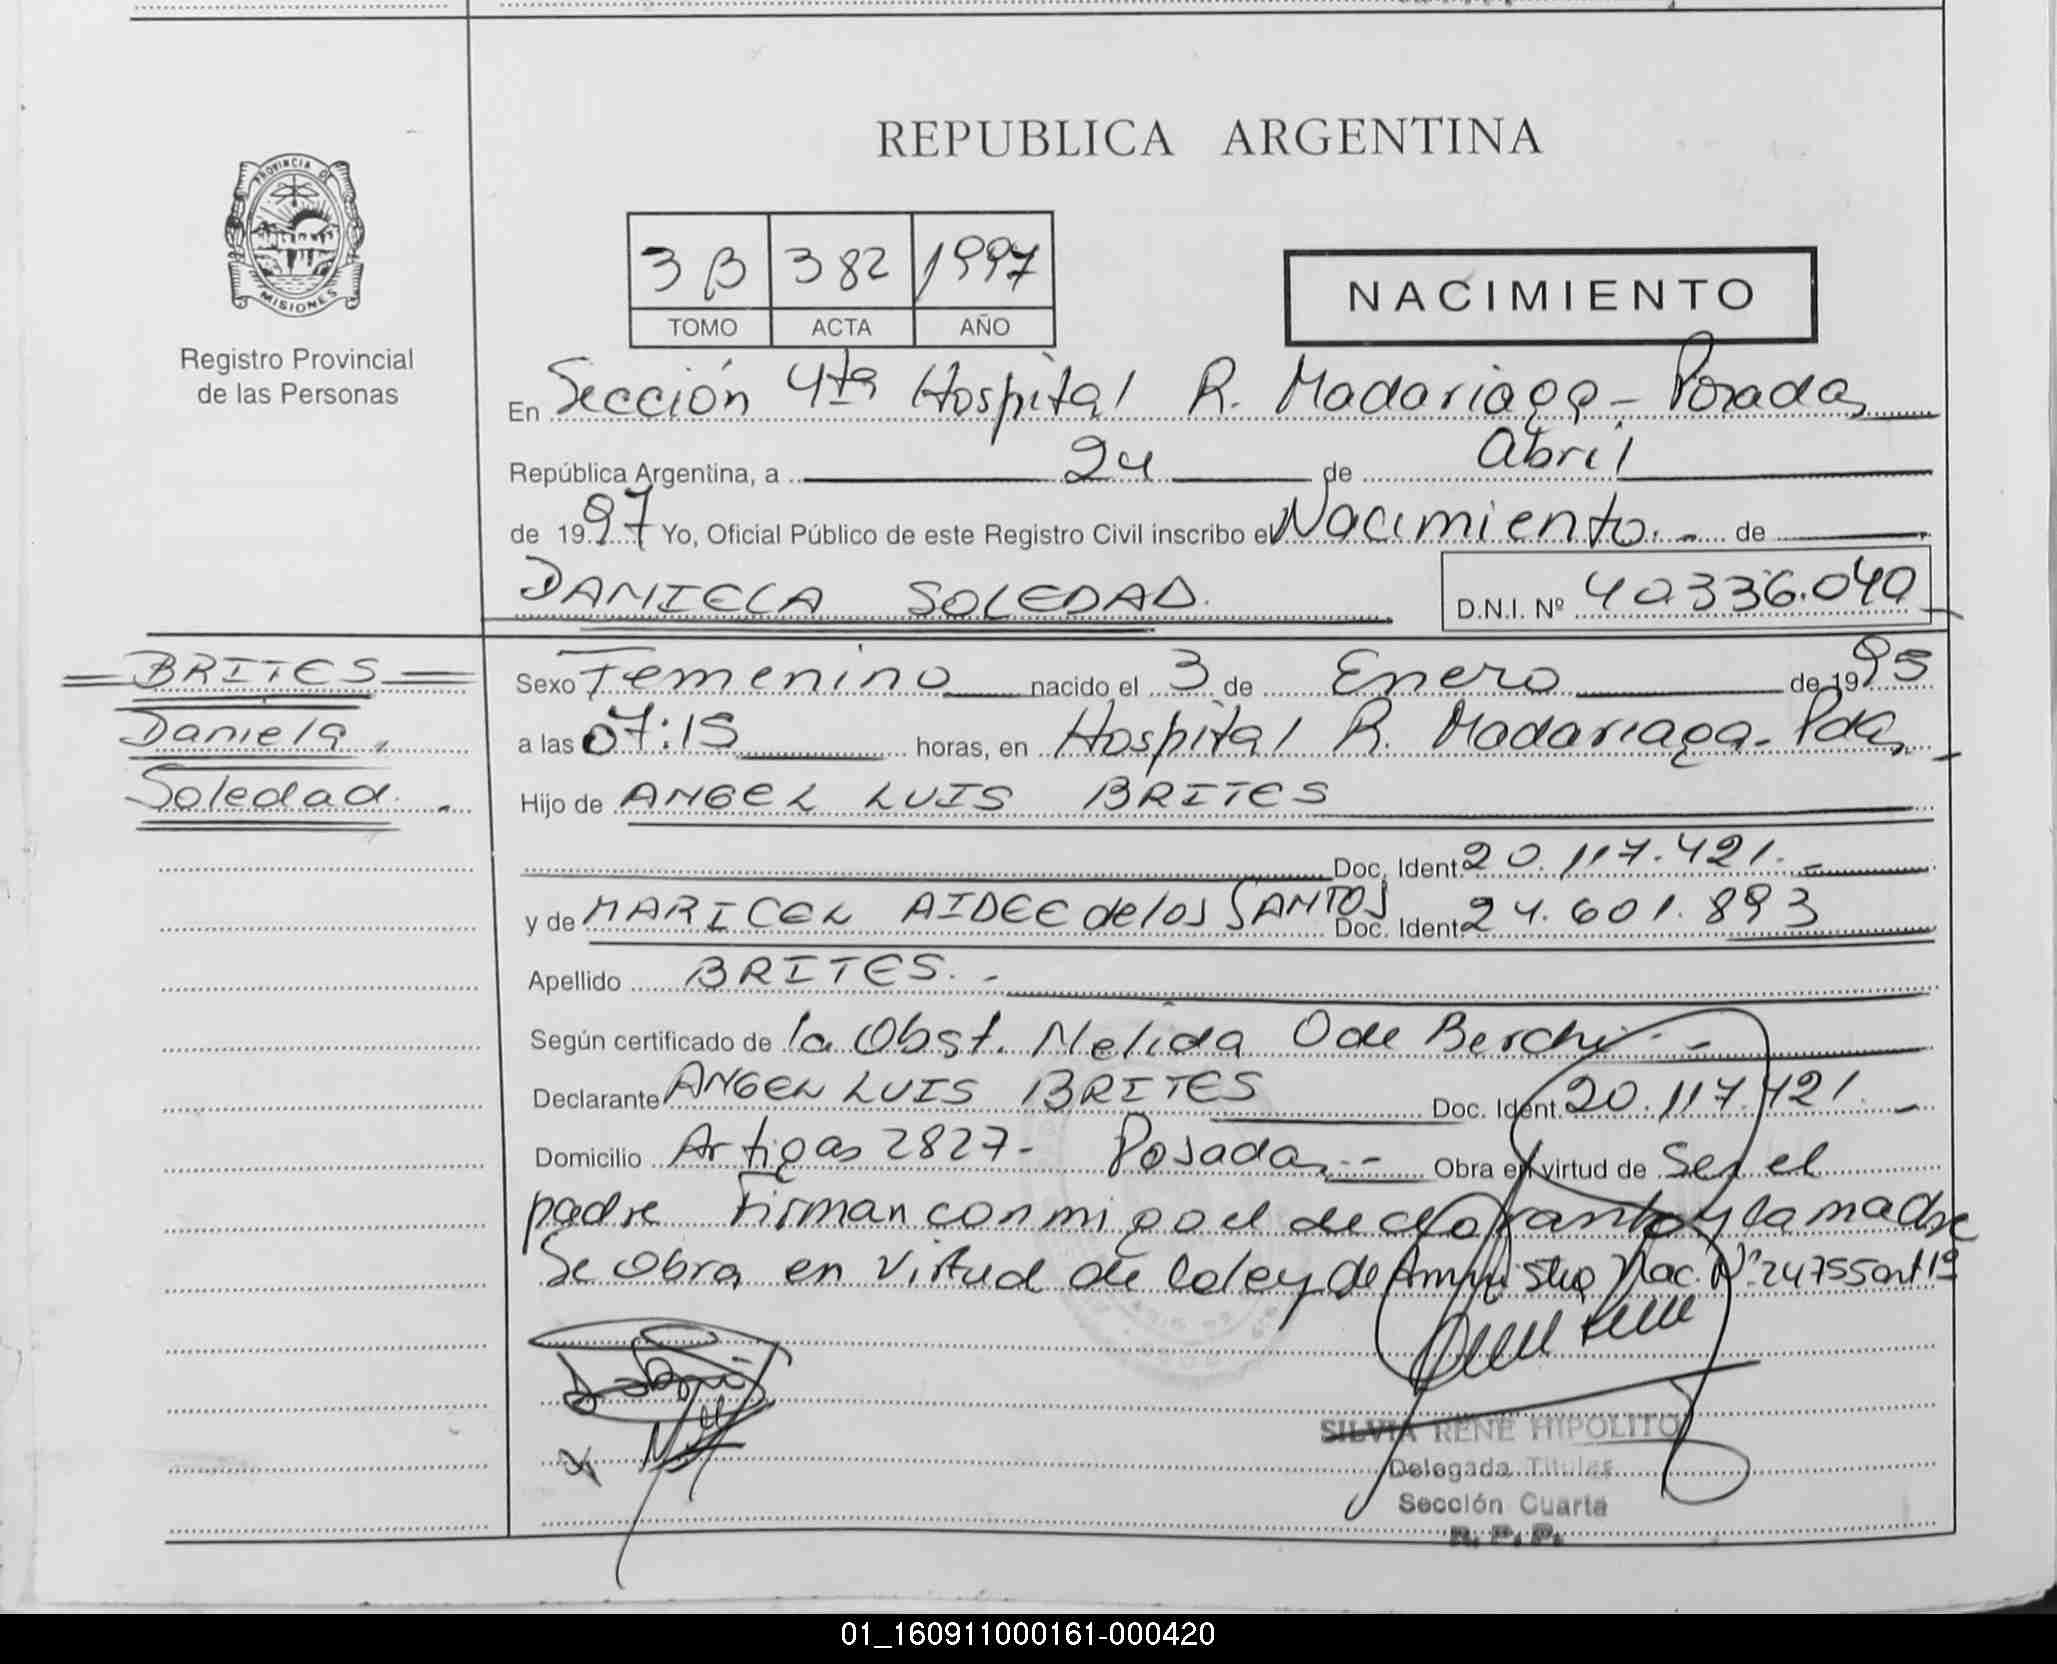 REPUBLICA ARGENTINA
PROVINCIA DE
MISIONES
Registro Provincial
de las Personas
3 B 382 1997
TOMO ACTA AÑO
NACIMIENTO
En Sección 4ta Hospital R. Madariaga - Posadas
República Argentina, a 24 de Abril
de 1997 Yo, Oficial Público de este Registro Civil inscribo el Nacimiento.- de
DANIELA SOLEDAD. D.N.I. Nº 40336.040
BRITES
Daniela
Soledad.
Sexo Femenino nacido el 3 de Enero de 1995
a las 07:15 horas, en Hospital R. Madariaga - Pdas
Hijo de ANGEL LUIS BRITES
Doc. Ident. 20.117.421.-
y de MARICEL AIDEE de los SANTOS Doc. Ident. 24.601.893
Apellido BRITES.-
Según certificado de la Obst. Nelida O de Berchi.-
Declarante ANGEL LUIS BRITES Doc. Ident. 20.117.421.-
Domicilio Artigas 2827- Posadas.- Obra en virtud de Ser el
padre Firman conmigo el declarante y la madre
Se obra en virtud de la ley de Amnistia Nac. Nº 24755 art 1º
SILVIA RENE HIPOLITO
Delegada Titular
Sección Cuarta
R. P. P.
01_160911000161-000420